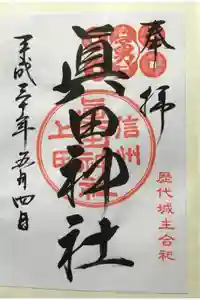 奉拝
歴代城主合祀
眞田神社
信州
上田
平成三十年五月四日